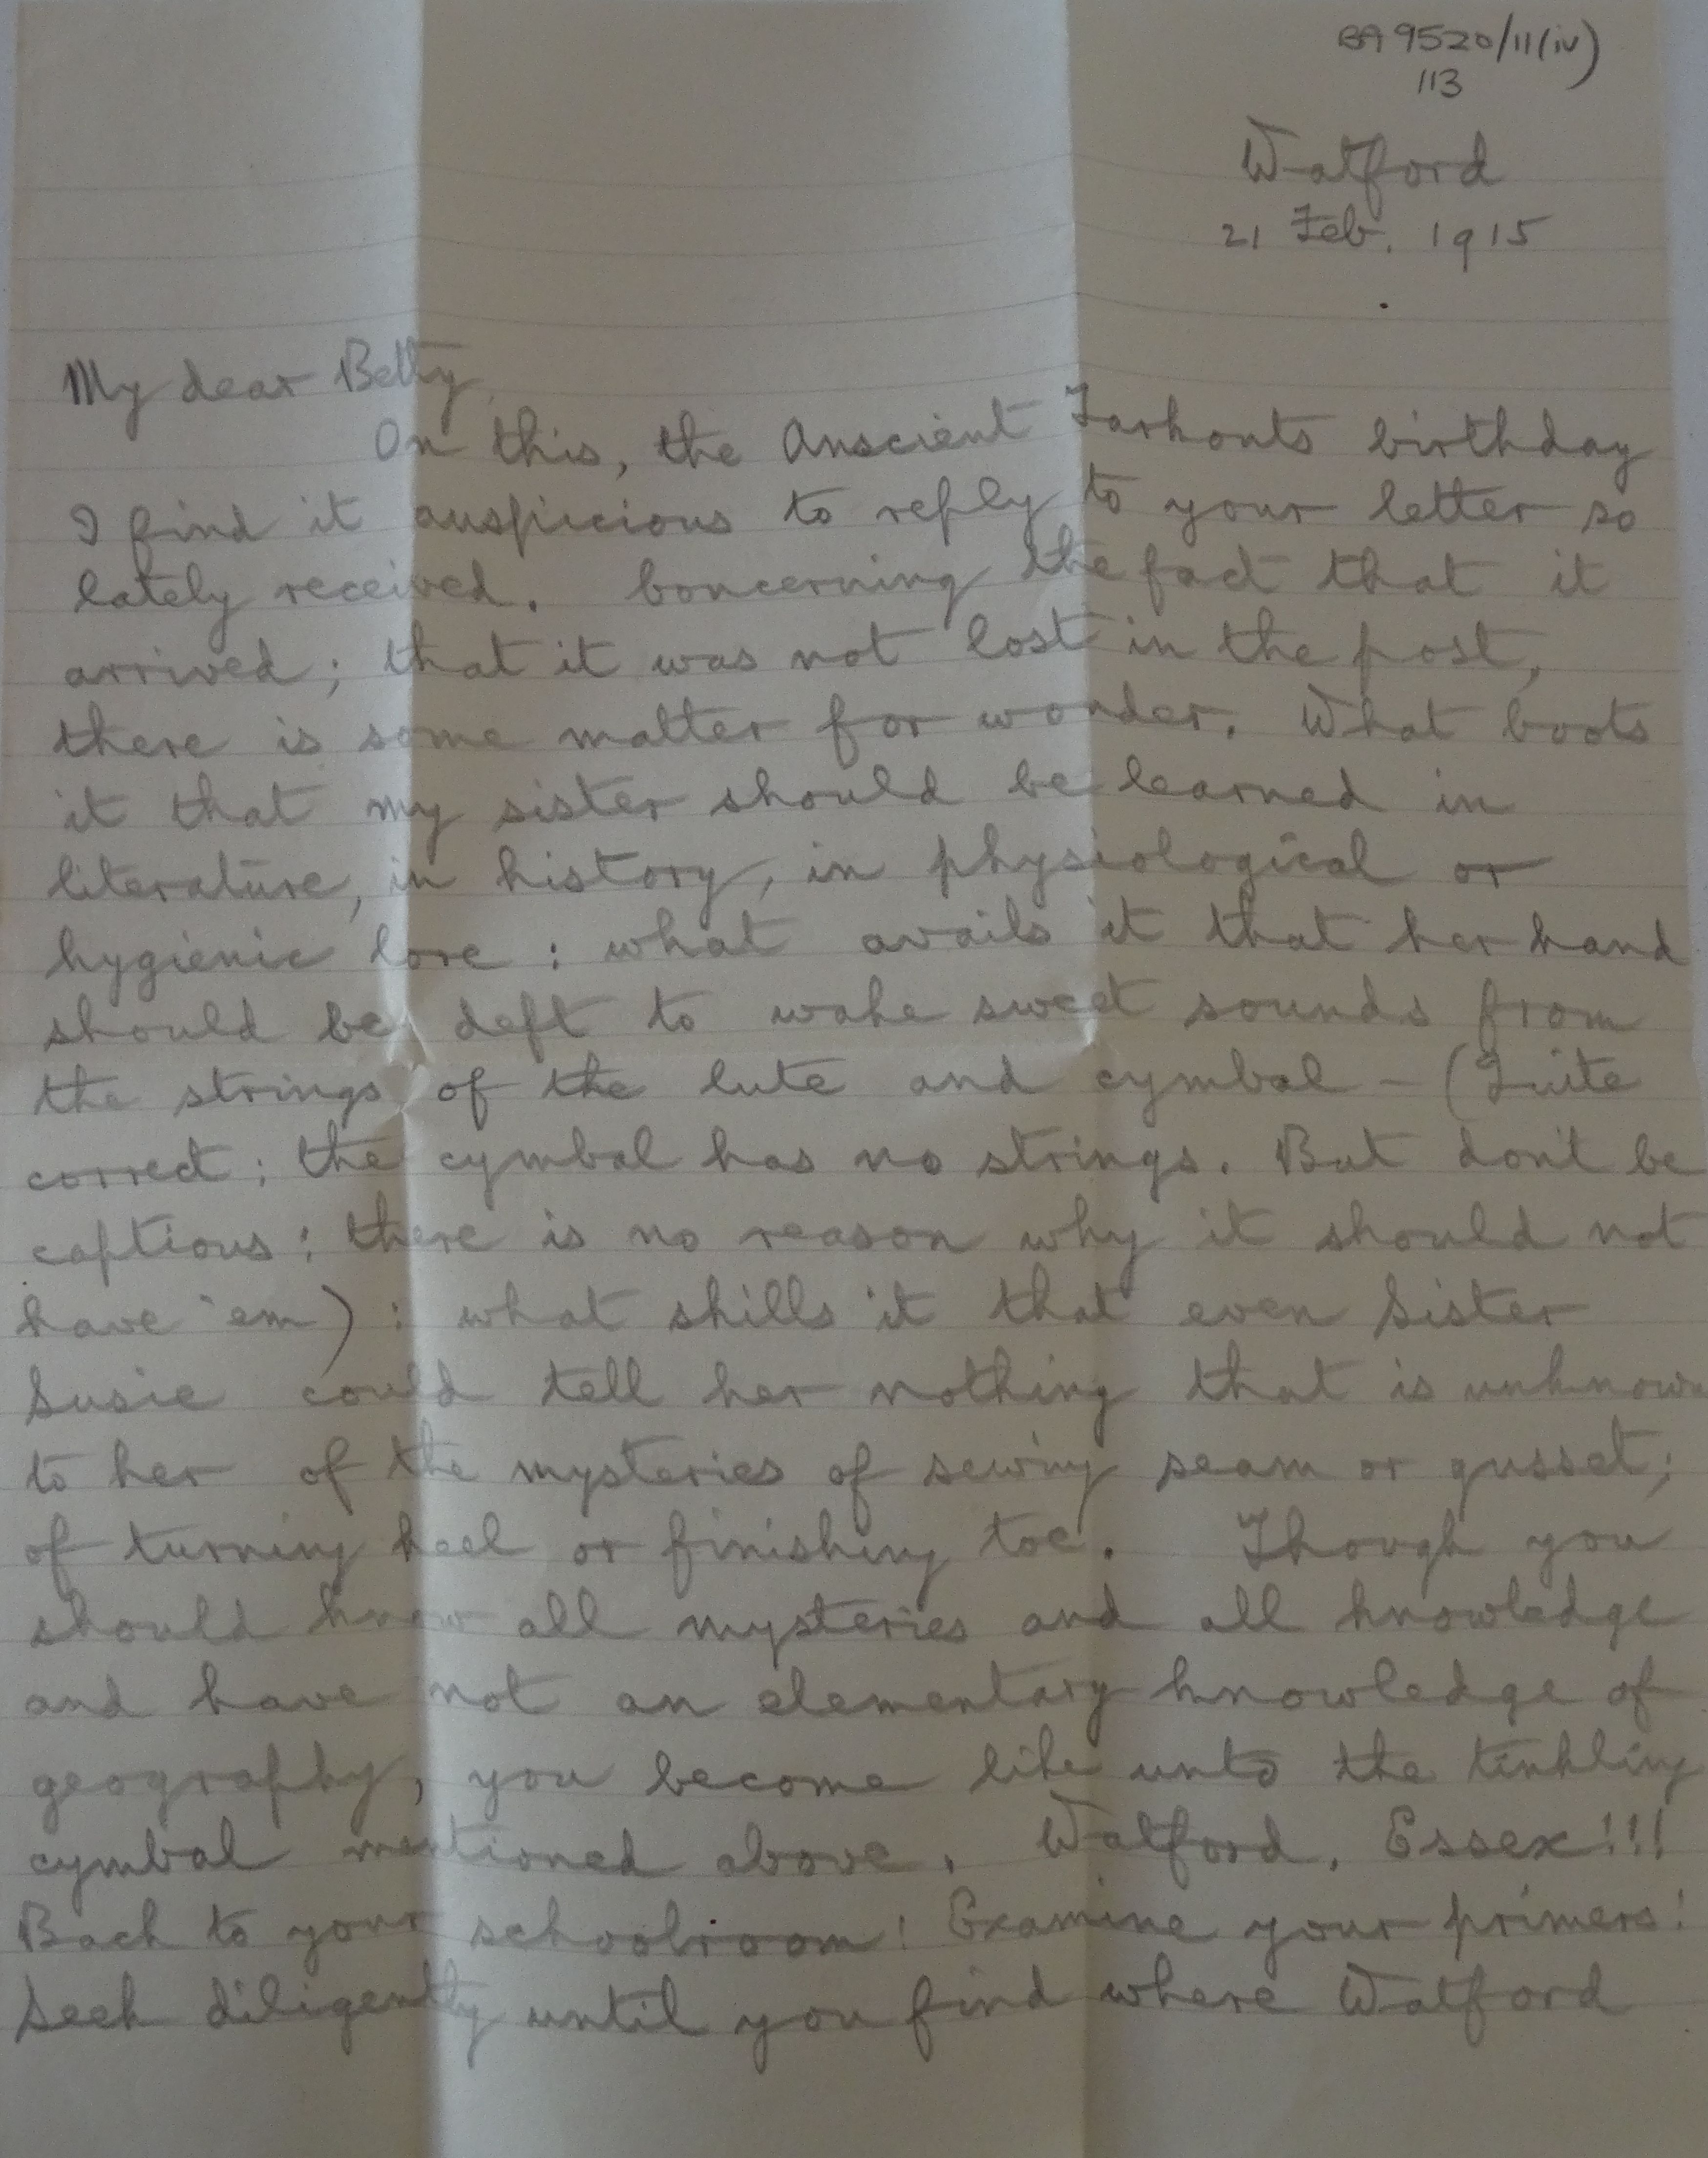 BA 9520/11(iv)
113
Watford
21 Feb. 1915
My dear Betty,
On this, the Anscient Tarhonts birthday
I find it auspicious to reply to your letter so
lately received. Concerning the fact that it
arrived; that it was not lost in the post,
there is some matter for wonder. What boots
it that my sister should be learned in
literature, in history, in physiological or
hygienic lore : what avails it that her hand
should be deft to wake sweet sounds from
the strings of the lute and cymbal – (Quite
correct; the cymbal has no strings. But don't be
captious: there is no reason why it should not
have 'em) : what skills it that even Sister
Susie could tell her nothing that is unknown
to her of the mysteries of sewing seam or gusset;
of turning heel or finishing toe. Though you
should know all mysteries and all knowledge
and have not an elementary knowledge of
geography, you become like unto the tinkling
cymbal mentioned above. Watford, Essex!!!
Back to your schoolroom! Examine your primers!
Seek diligently until you find where Watford